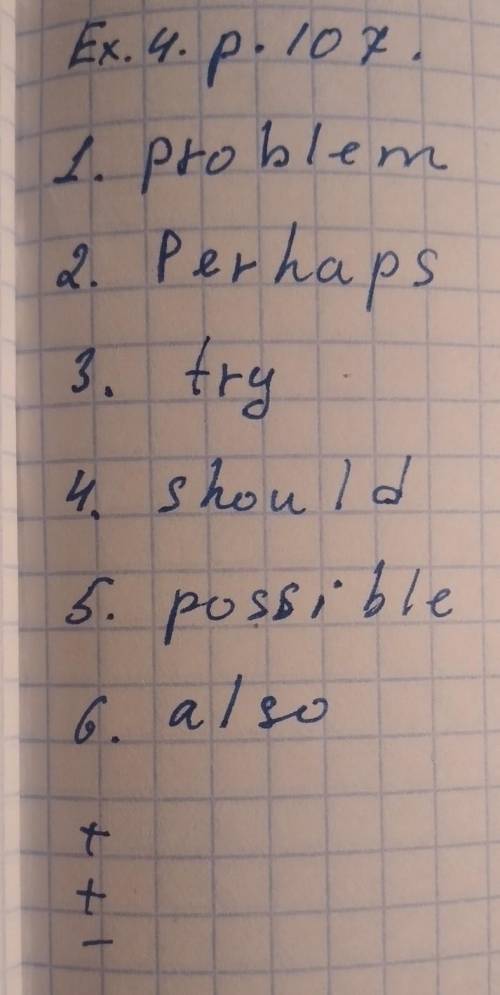 Ex. 4. p. 107.
1. problem
2. Perhaps
3. try
4. should
5. possible
6. also
+
+
-